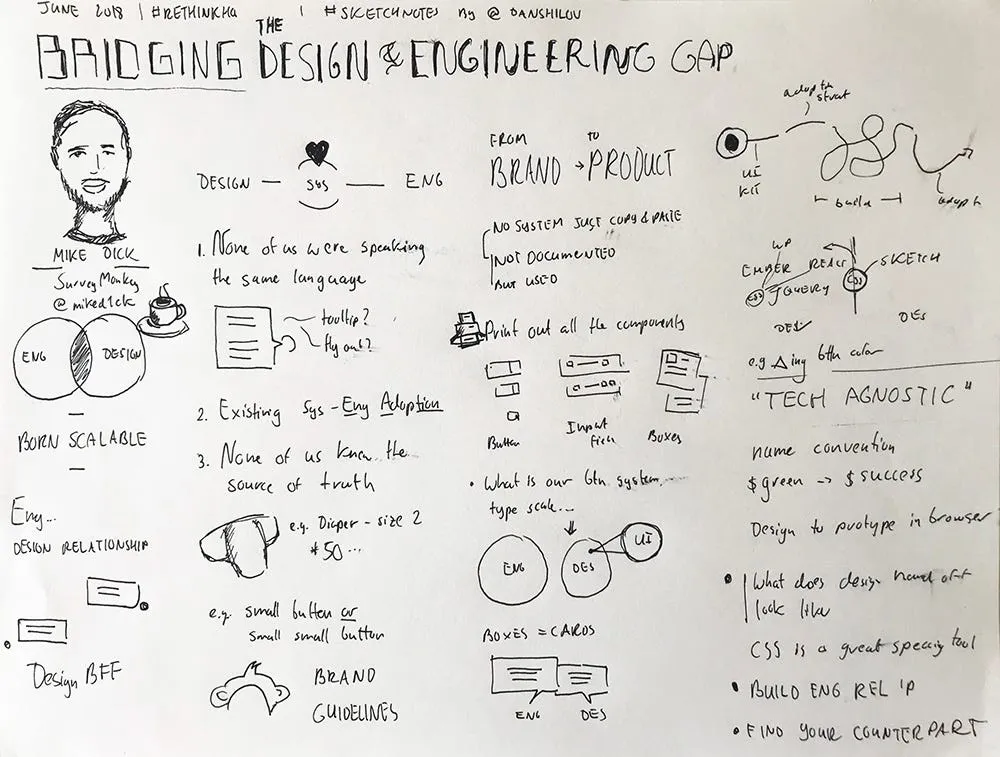 JUNE 2018 | #RETHINKHQ | #SKETCHNOTES By @DANSHILOV
BRIDGING THE DESIGN & ENGINEERING GAP
MIKE DICK
SurveyMonkey
@miked1ck
ENG DESIGN
BORN SCALABLE
Eng...
DESIGN RELATIONSHIP
Design BFF
DESIGN — SYS — ENG
1. None of us were speaking
the same language
tooltip?
fly out?
2. Existing Sys - Eng Adoption
3. None of us knew the
source of truth
e.g. Diaper - size 2
*50...
e.g. small button or
small small button
BRAND
GUIDELINES
FROM TO
BRAND → PRODUCT
NO SYSTEM JUST COPY & PASTE
NOT DOCUMENTED
BUT USED
Print out all the components
Button
Input
Boxes
• What is our btn system,
type scale...
ENG DES UI
BOXES = CARDS
ENG DES
UI
KIT
build
adopt
WP
EMBER REACT
CSS JQUERY
CSS SKETCH
DES
e.g. Δing btn color
"TECH AGNOSTIC"
name convention
$green → $success
Design to prototype in browser
• What does design hand off
look like
CSS is a great tool
• BUILD ENG REL'P
• FIND YOUR COUNTERPART